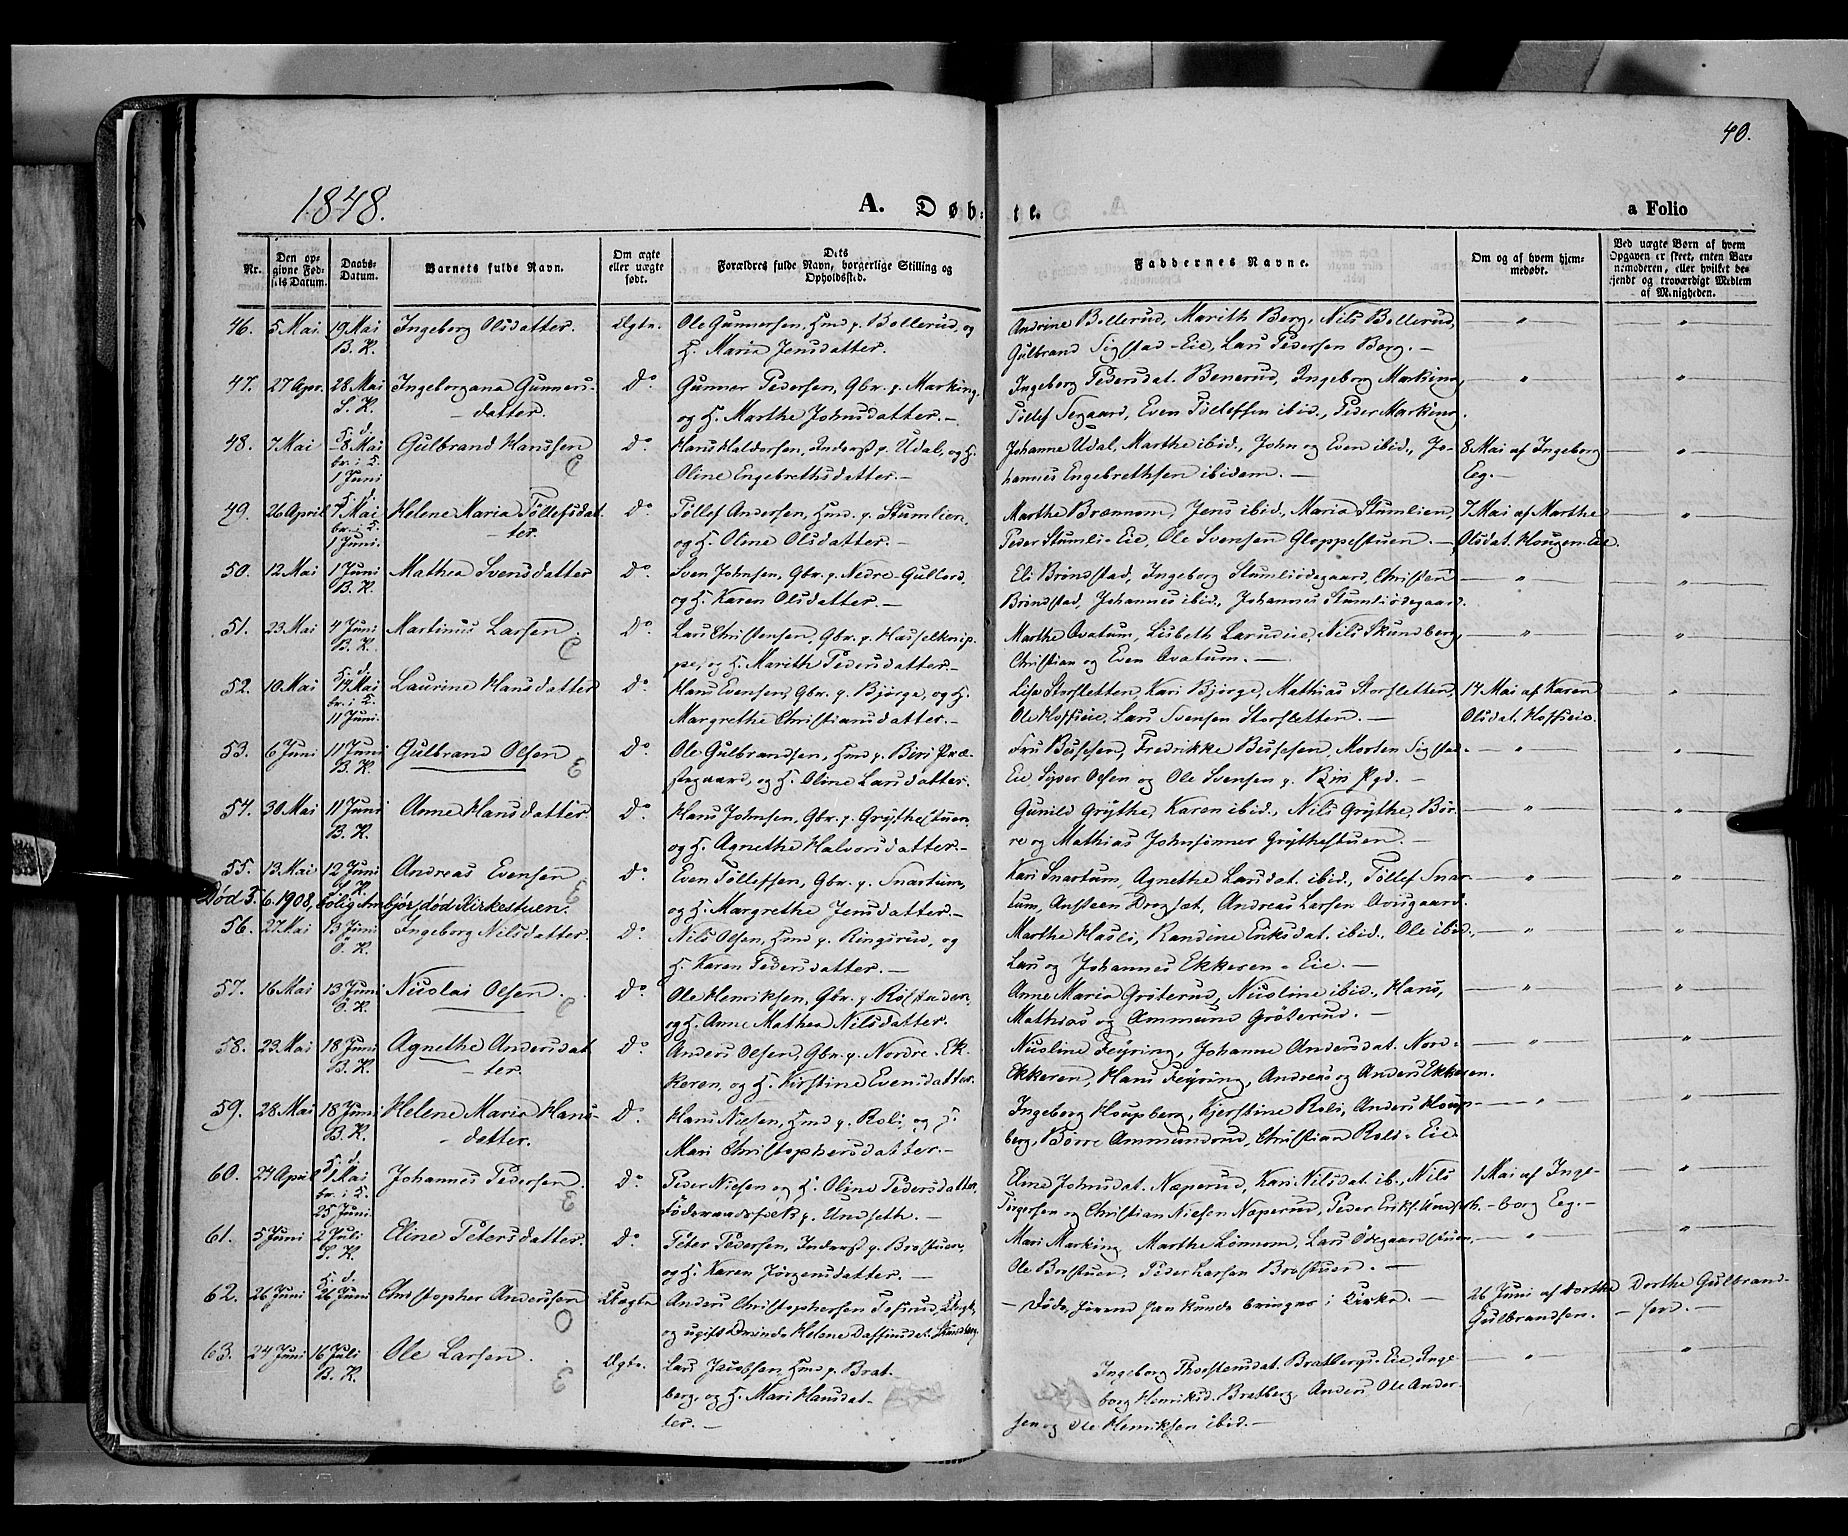 40.
1848.
A. Døb-
te.
a Folio
Nr.
Den op-
givne Fød-
sels Datum.
Daabs-
Datum.
Barnets fulde Navn.
Om ægte
eller uægte
født.
Dets
Forældres fulde Navn, borgerlige Stilling og
Opholdssted.
Faddernes Navne.
Om og af hvem hjem-
medøbt.
Ved uægte Børn af hvem
Opgaven er skeet, enten Bar-
nemoderen, eller hvilket be-
kjendt og troværdigt Medlem
af Menigheden.
46. 5 Mai 19 Mai Ingeborg Olsdatter. Ægte. Ole Gunnersen, Hmd p. Bollerud, og Andrine Bollerud, Marith Berg, Nils Bollerud, " "
B. K. H. Maria Jensdatter. Gulbrand Sigstad-Eie, Lars Pedersen Berg. —
47. 27 Apr. 28 Mai Ingeborgana Gunners- Do Gunner Pedersen, Gbr. p. Marking, Ingeborg Pedersdat. Benerud, Ingeborg Marking, " "
S. K. datter. og H. Marthe Johnsdatter. — Tollef Segaard, Even Tolleffsen ibid., Peder Marking.
48. 7 Mai H. d. 8 Mai Gulbrand Hanssen Do Hans Haldorsen, Inderst p. Udal, og H. Johanne Udal, Marthe ibid., John og Even ibid., Jo- 8 Mai af Ingeborg "
br. i K. 1 Juni Oline Engebrethsdatter. — hannes Engebrethsen ibidem. — Eeg. —
49. 26 April H. d. 7 Mai Helene Maria Tollefsdat- Do Tollef Andersen, Hmd p. Stumlien, Marthe Brænnom, Jens ibid., Maria Stumlien, 7 Mai af Marthe "
br. i K. 1 Juni. ter. og H. Oline Olsdatter. — Peder Stumli-Eie, Ole Svensen Gloppestuen. — Olsdat. Hougen-Eie.
50. 12 Mai 1 Juni Mathea Svensdatter Do Sven Johnsen, Gbr. p. Nedre-Gullord, Eli Brøndstad, Ingeborg Stumliødegaard, Christen " "
B. K. og H. Karen Olsdatter. — Brindstad, Johannes ibid., Johannes Stumliødegaard.
51. 23 Mai 4 Juni Martinus Larsen. Do Lars Christensen, Gbr. p. Hasselknip- Marthe Ovatum, Lisbeth Larudeie, Nils Skundberg, " "
B. K. pe, og H. Marith Pedersdatter. — Christian og Even Ovatum. —
52. 10 Mai H. d. 14 Mai Laurine Hansdatter Do Hans Evensen, Gbr. p. Bjørge, og H. Lisa Storsletten, Kari Bjørge, Mathias Storsletten, 14 Mai af Karen "
br. i K. 11 Juni. Margrethe Christiansdatter. — Ole Hoffseie, Lars Svensen Storsletten. — Olsdat. Hoffseie.
53. 6 Juni 11 Juni Gulbrand Olsen Do Ole Gulbrandsen, Hmd p. Biri Præ- Fru Bessesen, Fredrikke Bessesen, Morten Sigstad- " "
B. K. stegaard, og H. Oline Larsdatter. Eie, Syver Olsen og Ole Svensen p. Biri Pgd. —
54. 30 Mai 11 Juni Anne Hansdatter Do Hans Johnsen, Gbr. p. Grythestuen, Gunild Grythe, Karen ibid., Nils Grythe, Bør- " "
B. K. og H. Agnethe Halvorsdatter. — re og Mathias Johnsønner Grythestuen. —
55. 13 Mai 12 Juni Andreas Evensen Do Even Tolleffsen, Gbr. p. Snartum, Kari Snartum, Agnethe Larsdat. ibid., Tollef Snar- " "
S. K. og H. Margrethe Jensdatter. — tum, Ansteen Drogset, Andreas Larsen Ovisgaard.
Død 3. 6. 1908, bolig Ambjørsdød Kirkestuen.
56. 27 Mai 13 Juni Ingeborg Nilsdatter. Do Nils Olsen, Hmd p. Ringsrud, og Marthe Hasli, Randine Eriksdat. ibid., Ole ibid., " "
S. K. H. Karen Pedersdatter. — Lars og Johannes Ekkeren-Eie. —
57. 16 Mai 13 Juni Nicolai Olsen. Do Ole Henriksen, Gbr. p. Røstuden, Anne Maria Grøterud, Nicoline ibid., Hans, " "
S. K. og H. Anne Mathea Nilsdatter. Mathias og Ammund Grøterud. —
58. 23 Mai 18 Juni Agnethe Andersdat- Do Anders Olsen, Gbr. p. Nordre-Ek- Nicoline Feyring, Johanne Andersdat. Nord- " "
B. K. ter. keren, og H. Kirstine Evensdatter. Ekkeren, Hans Feyring, Andreas og Anders Ekkeren.
59. 28 Mai 18 Juni Helene Maria Hans- Do Hans Nielsen, Hmd p. Roli, og H. Ingeborg Houpberg, Kjerstine Roli, Anders Houp- " "
B. K. datter. Mari Christophersdatter. — berg, Børre Ammundrud, Christian Roli-Eie.
60. 24 April H. d. 1 Mai Johannes Pedersen. Do Peder Nielsen og H. Oline Pedersdatter, Eline Johnsdat. Næperud, Kari Nilsdat. ib., Nils 1 Mai af Inge- "
br. i K. 25 Juni Føderaadsfolk p. Undseth. — Torgersen og Christian Nielsen Næperud, Peder Eriks. Undseth. borg Eeg. —
61. 5 Juni 2 Juli Eline Petersdatter. Do Peter Pedersen, Inderst p. Brostuen, Mari Marking, Marthe Lønnom, Lars Ødegaardstuen, " "
S. K. og H. Karen Jørgensdatter. — Ole Brostuen, Peder Larsen Brostuen. —
62. 26 Juni H. d. 26 Juni Christopher Anderssen Uægte Anders Christophersen — Døde førend han kunde bringes i Kirke. — 26 Juni af Dorthe Dorthe Gulbrand-
og ugift Qvinde Helene Gulbrandsen. sen. —
63. 24 Juni 16 Juli Ole Larsen. Ægte. Lars Jacobsen, Hmd p. Brat- Ingeborg Thorstensdat. Bratbergs-Eie, Inge- " "
B. K. berg, og H. Mari Hansdat- borg Henriksd. Bratberg, Anders, Ole Ander-
ter. — sen og Ole Henriksen ibid. —